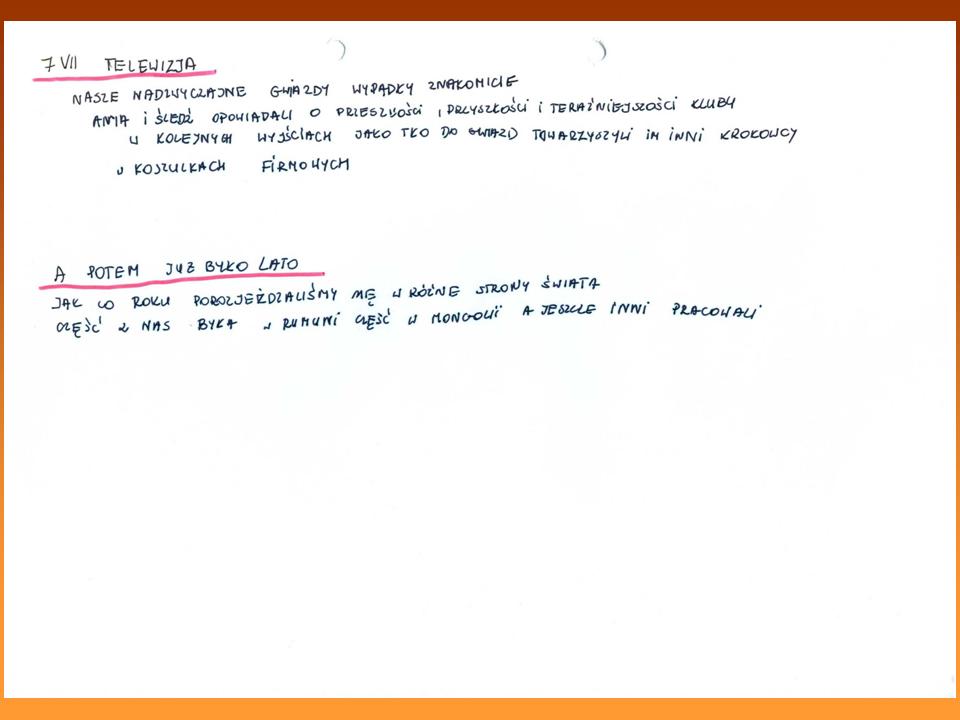 7 VII TELEWIZJA
NASZE NADZWYCZAJNE GWIAZDY WYPADŁY ZNAKOMICIE
ANIA I ŚLEDŹ OPOWIADALI O PRZESZŁOŚCI, PRZYSZŁOŚCI I TERAŹNIEJSZOŚCI KLUBU
W KOLEJNYCH WYJŚCIACH JAKO TŁO DO GWIAZD TOWARZYSZYLI IM INNI KROKOWCY
W KOSZULKACH FIRMOWYCH
A POTEM JUŻ BYŁO LATO
JAK CO ROKU POROZJEŻDZALIŚMY SIĘ W RÓŻNE STRONY ŚWIATA
CZĘŚĆ Z NAS BYŁA W RUMUNI CZĘŚĆ W MONGOLII A JESZCZE INNI PRACOWALI